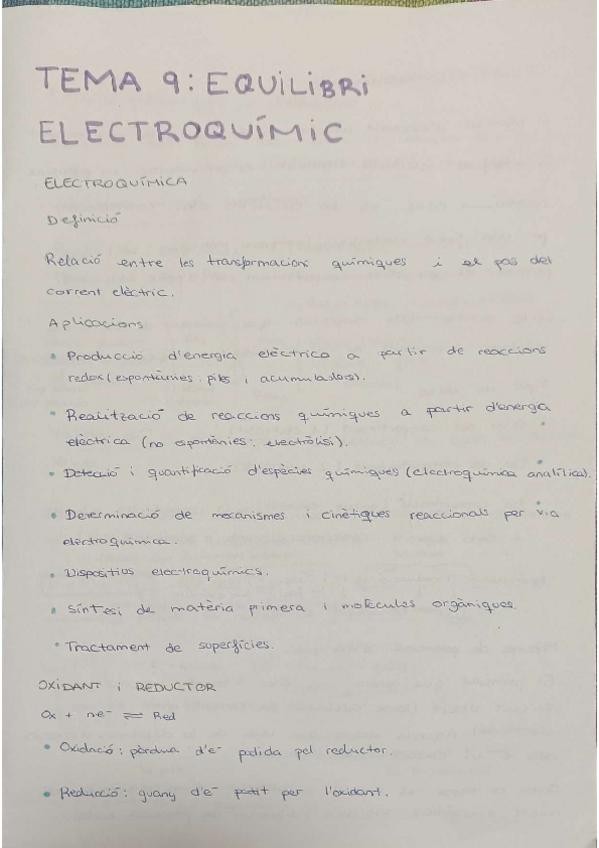 TEMA 9: EQUILIBRI
ELECTROQUÍMIC
ELECTROQUÍMICA
Definició
Relació entre les transformacions químiques i el pas del
corrent elèctric.
Aplicacions
• Producció d'energia elèctrica a partir de reaccions
redox (espontànies: piles i acumuladors).
• Realització de reaccions químiques a partir d'energia
elèctrica (no espontànies: electròlisi).
• Detecció i quantificació d'espècies químiques (electroquímica analítica).
• Determinació de mecanismes i cinètiques reaccionals per via
electroquímica.
• Dispositius electroquímics.
• Síntesi de matèria primera i molècules orgàniques.
• Tractament de superfícies.
OXIDANT i REDUCTOR
Ox + ne⁻ ⇌ Red
• Oxidació: pèrdua d'e⁻ patida pel reductor.
• Reducció: guany d'e⁻ patit per l'oxidant.